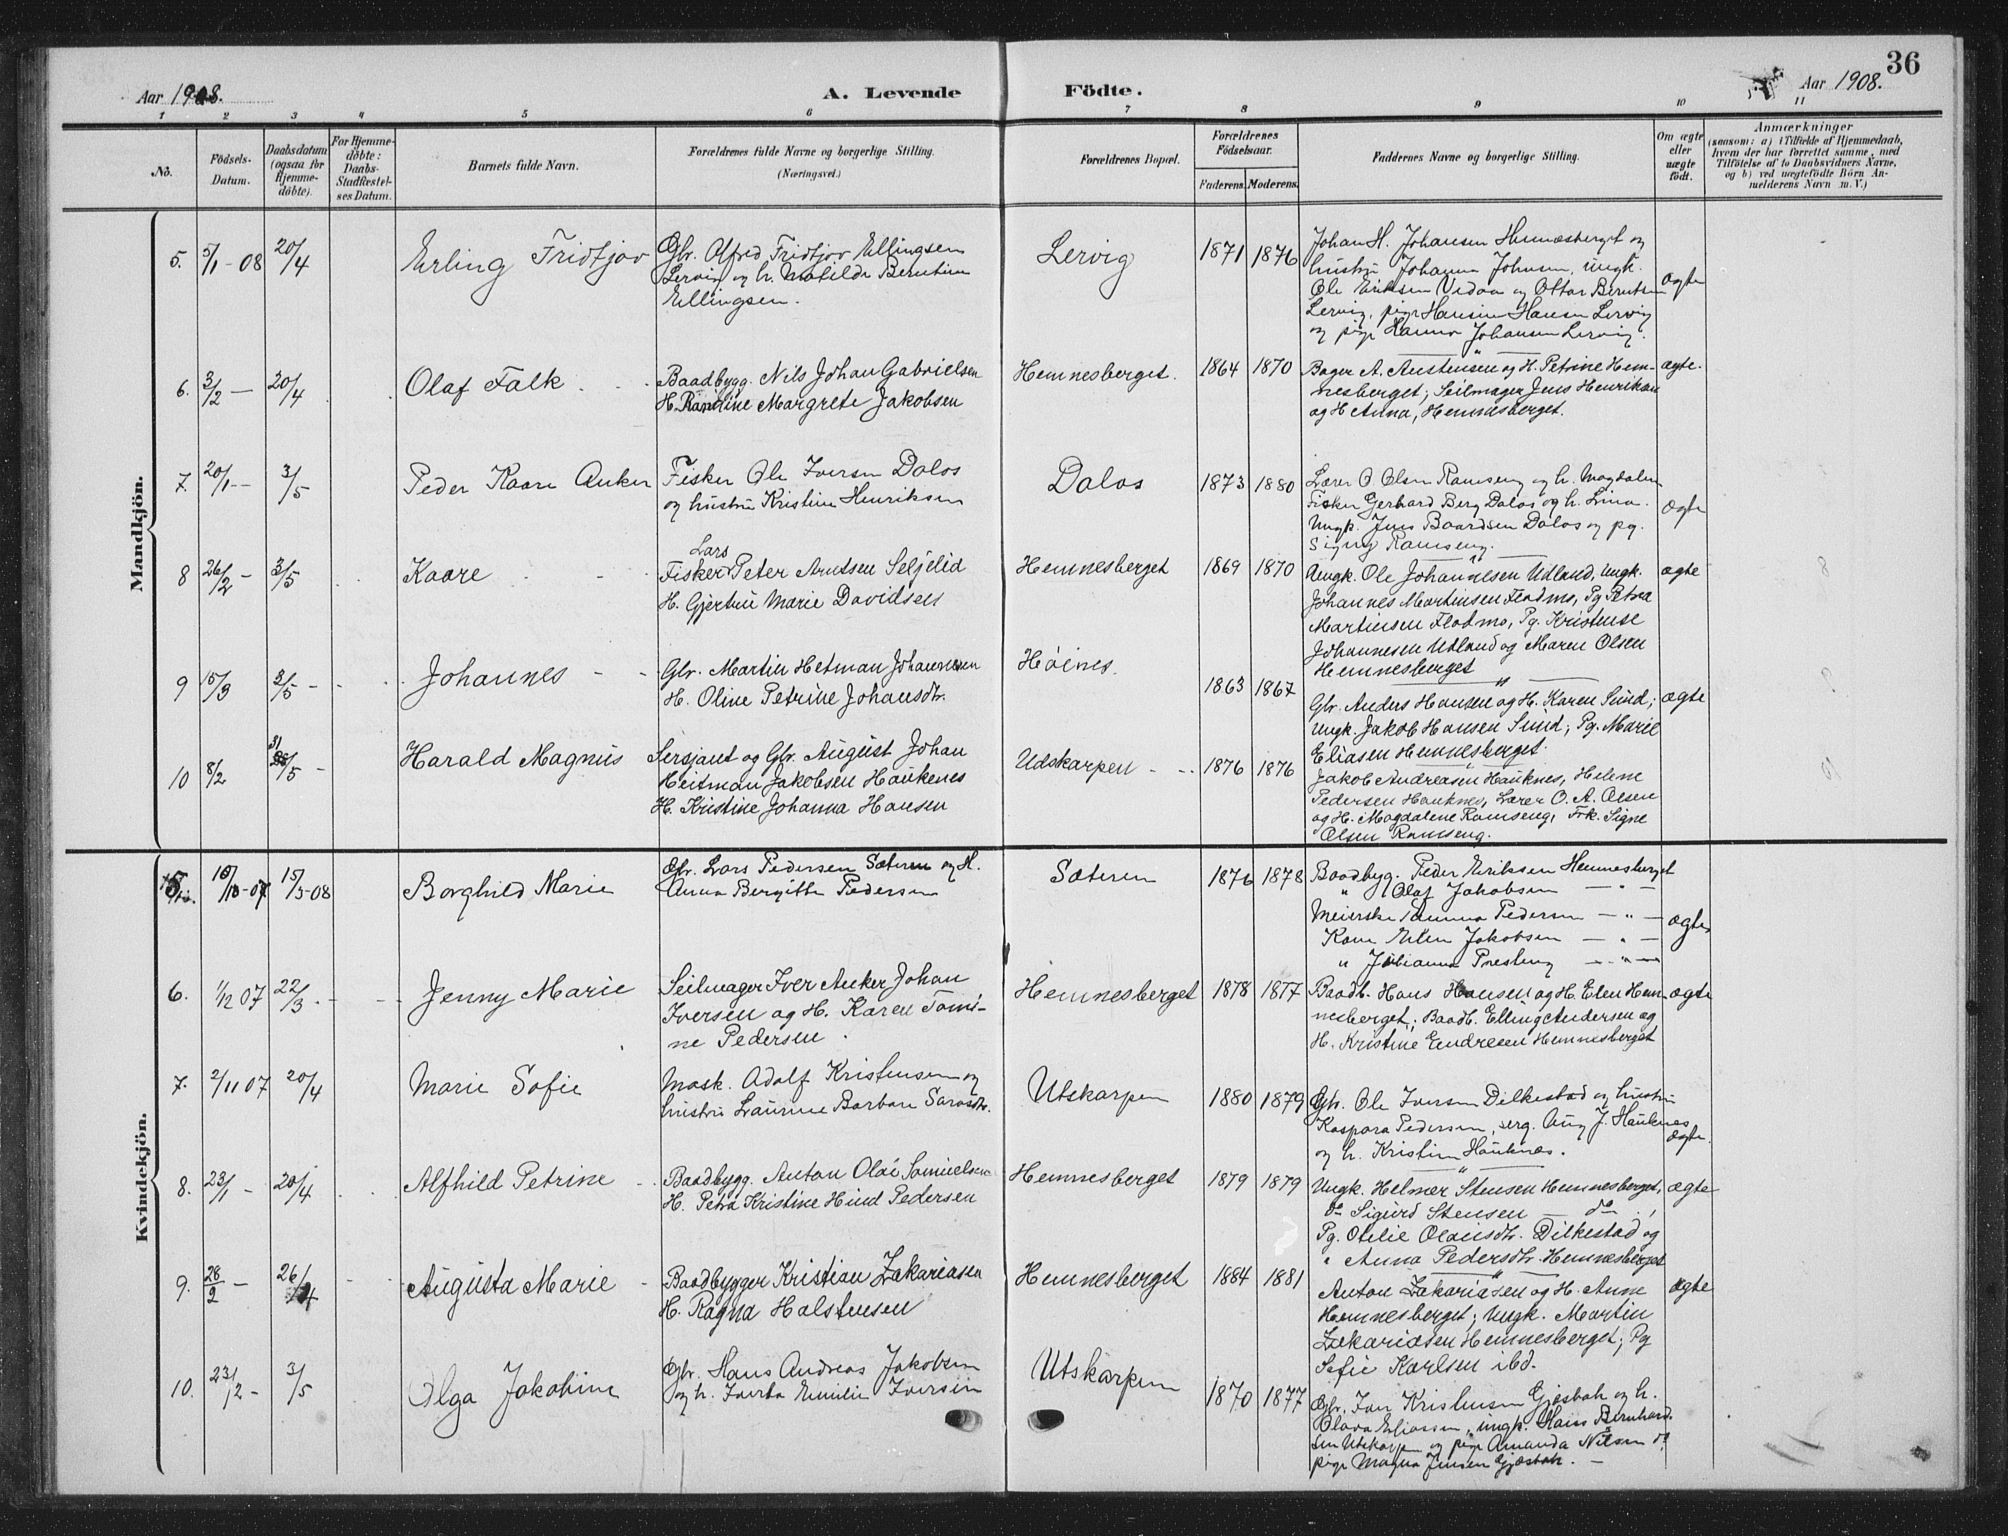 Aar 1908.
A. Levende
Födte.
Aar 1908.
36
1 2 3 4 5 6 7 8 9 10 11
No.
Födsels-
Datum.
Daabsdatum
(ogsaa for
Hjemme-
döbte).
For Hjemme-
döbte:
Daabs-
Stadfæstel-
ses Datum.
Barnets fulde Navn.
Forældrenes fulde Navne og borgerlige Stilling.
(Næringsvei.)
Forældrenes Bopæl.
Forældrenes
Födselsaar.
Faderens. Moderens.
Faddernes Navne og borgerlige Stilling.
Om ægte
eller
uægte
födt.
Anmærkninger
(saasom: a) i Tilfælde af Hjemmedaab,
hvem der har forrettet samme, med
Tilföielse af to Daabsvidners Navne,
og b) ved uægtefödte Börn An-
melderens Navn m. V.)
Mandkjön.
5. 5/1-08 20/4 Erling Fridtjov
Gbr. Alfred Fridtjov Ellingsen
Lervig og h. Matilde Berntine
Ellingsen.
Lervig 1871 1876
Johan H. Johansen Hemnesberget og
hustru Johanna Johnsen, ungk.
Ole Eriksen Vedaa og Ottar Berntsen
Lervig, pige Hansine Hansen Lervig
og pige Hanna Johansen Lervig.
ægte
6. 3/2 — 20/4 Olaf Falk
Baadbygg. Nils Johan Gabrielsen
H. Randine Margrete Jakobsen
Hemnesberget. 1864 1870
Bager A. Austensen og H. Petrine Hem-
nesberget; Seilmager Jens Henriksen
og H Anna, Hemnesberget.
ægte.
7. 20/1 — 3/5 Peder Kaare Anker
Fisker Ole Iversen Dalos
og hustru Kristine Henriksen
Dalos 1873 1880
Lærer O. Olsen Ramseng og h. Magdalen
Fisker Gerhard Berg Dalos og h. Lina.
Ungk. Jens Baardsen Dalos og pg.
Signy Ramseng.
ægte
8 26/2 — 3/5 Kaare
Lars
Fisker Peter Arntsen Seljelid
H. Gjertru Marie Davidsen
Hemnesberget 1869 1870
Ungk. Ole Johannesen Utland, Ungk.
Johannes Martinsen Flodmo, Pg Petra
Martinsen Flodmo, Pg. Kristense
Johannesen Utland og Maren Olsen
Hemnesberget
ægte
9 15/3 3/5 — Johannes
Gbr. Martin Hetman Johannesen
H. Oline Petrine Johansdtr.
Høines. 1863 1867
Gbr. Anders Hansen og H. Karen Sund;
Ungk. Jakob Hansen Sund; Pg. Marie
Eliasen Hemnesberget.
ægte
10 8/2 31/5 — Harald Magnus
Sersjant og Gbr. August Johan
Heitman Jakobsen Haukenes
H. Kristine Johanna Hansen
Udskarpen 1876 1876
Jakob Andreasen Hauknes, Helene
Pedersen Hauknes, Lærer O. A. Olsen
og H. Magdalene Ramseng, Frk. Signe
Olsen Ramseng.
Kvindekjön.
5. 16/10-07 15/3-08 Borghild Marie
Gbr. Lars Pedersen Sæteren og H.
Anna Bergitte Pedersen
Sæteren 1876 1878
Baadbyg. Peder Eriksen Hemnesberget
" Olaf Jakobsen — " —
Meierske Pedersen — " —
Kone Elen Jakobsen — " —
" Julianna — " —
ægte
6. 1/12 07 22/3 — Jenny Marie
Seilmager Iver Anker Johan
Iversen og H. Karen Tomi-
ne Pedersen.
Hemnesberget 1878 1877
Baadb. Hans Hansen og H. Elen Hem-
nesberget; Baadb. Elling Andersen og
H. Kristine Endresen Hemnesberget
ægte
7. 2/11 07 20/4 Marie Sofie
Mask. Adolf Kristensen og
hustru Laurine Barbara Sarasdtr.
Utskarpen 1880 1879
Gbr. Ole Iversen Dilkestad og hustru
Kaspara Pedersen, serg. Aug J. Hauknes
og h. Kristine Hauknes.
ægte.
8. 23/1 — 20/4 Alfhild Petrine
Baadbygg. Anton Olai Samuelsen
H. Petra Kristine Hind Pedersen
Hemnesberget 1879 1879
Ungk. Helmer Stensen Hemnesberget,
do Sigurd Stensen — do —
Pg. Otilie Olaisdtr. Dilkestad og
" Anna Pedersdtr. Hemnesberget
ægte
9. 28/2 — 26/4 Augusta Marie
Baadbygger Kristian Zakariasen
H. Ragna Halstensen
Hemnesberget 1884 1881
Anton Zakariasen og H. Anne
Hemnesberget; Ungk. Martin
Zakariasen Hemnesberget; Pg
Sofie Karlsen ibd.
ægte
10. 23/2 — 3/5 Olga Jakobine
Gbr. Hans Andreas Jakobsen
og h. Emilie Iversen
Utskarpen 1870 1877
Gbr. Kristensen Gjesbak og h.
Olava Eliassen, ungk. Hans Bernhard-
sen Utskarpen og pige Amanda Nilsen do.
pige Magna Jensen Gjesbak. —